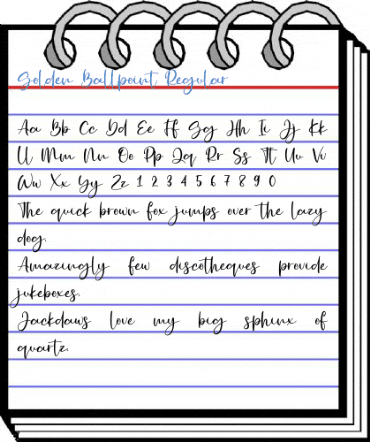 Golden Ballpoint Regular
Aa Bb Cc Dd Ee Ff Gg Hh Ii Jj Kk
Ll Mm Nn Oo Pp Qq Rr Ss Tt Uu Vv
Ww Xx Yy Zz 1 2 3 4 5 6 7 8 9 0
The quick brown fox jumps over the lazy
dog.
Amazingly few discotheques provide
jukeboxes.
Jackdaws love my big sphinx of
quartz.